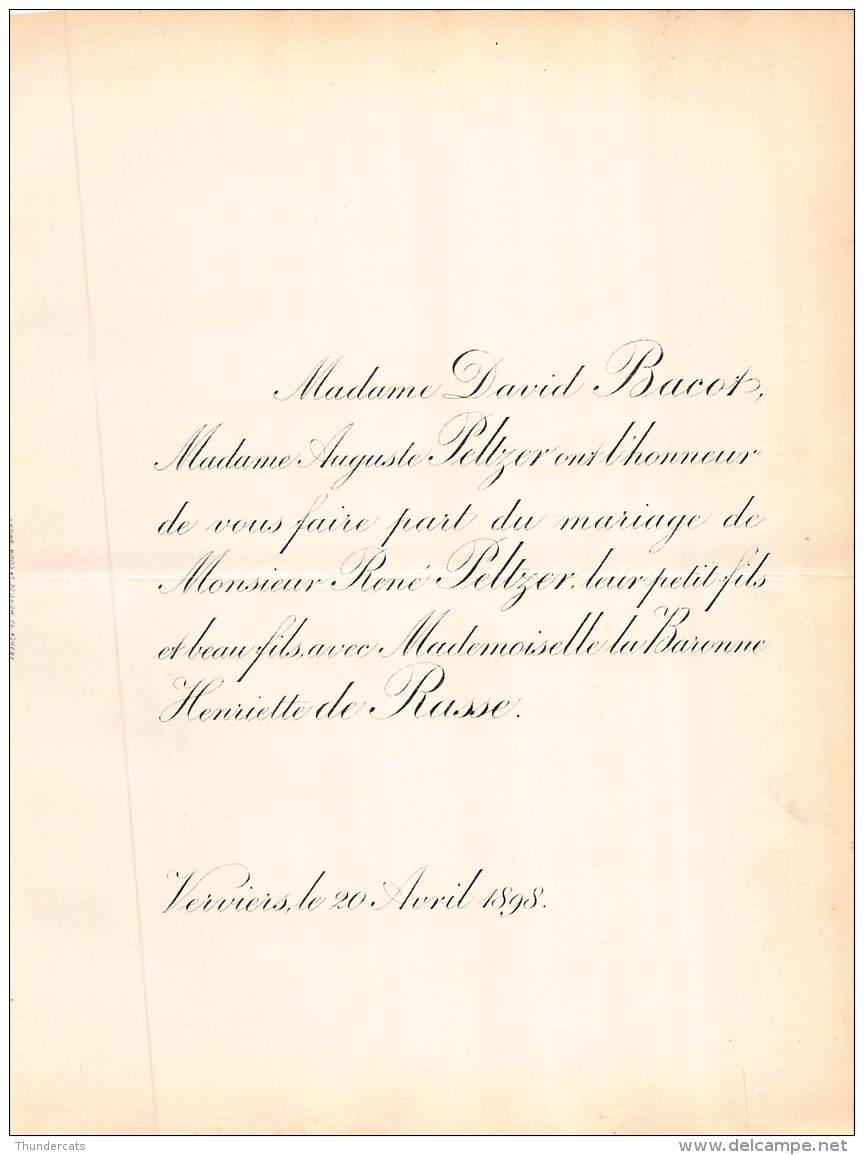 Madame David Bacot,
Madame Auguste Peltzer ont l'honneur
de vous faire part du mariage de
Monsieur René Peltzer, leur petit fils
et beau fils, avec Mademoiselle la Baronne
Henriette de Rasse.
Verviers, le 20 Avril 1898.
Thundercats
www.delcampe.net